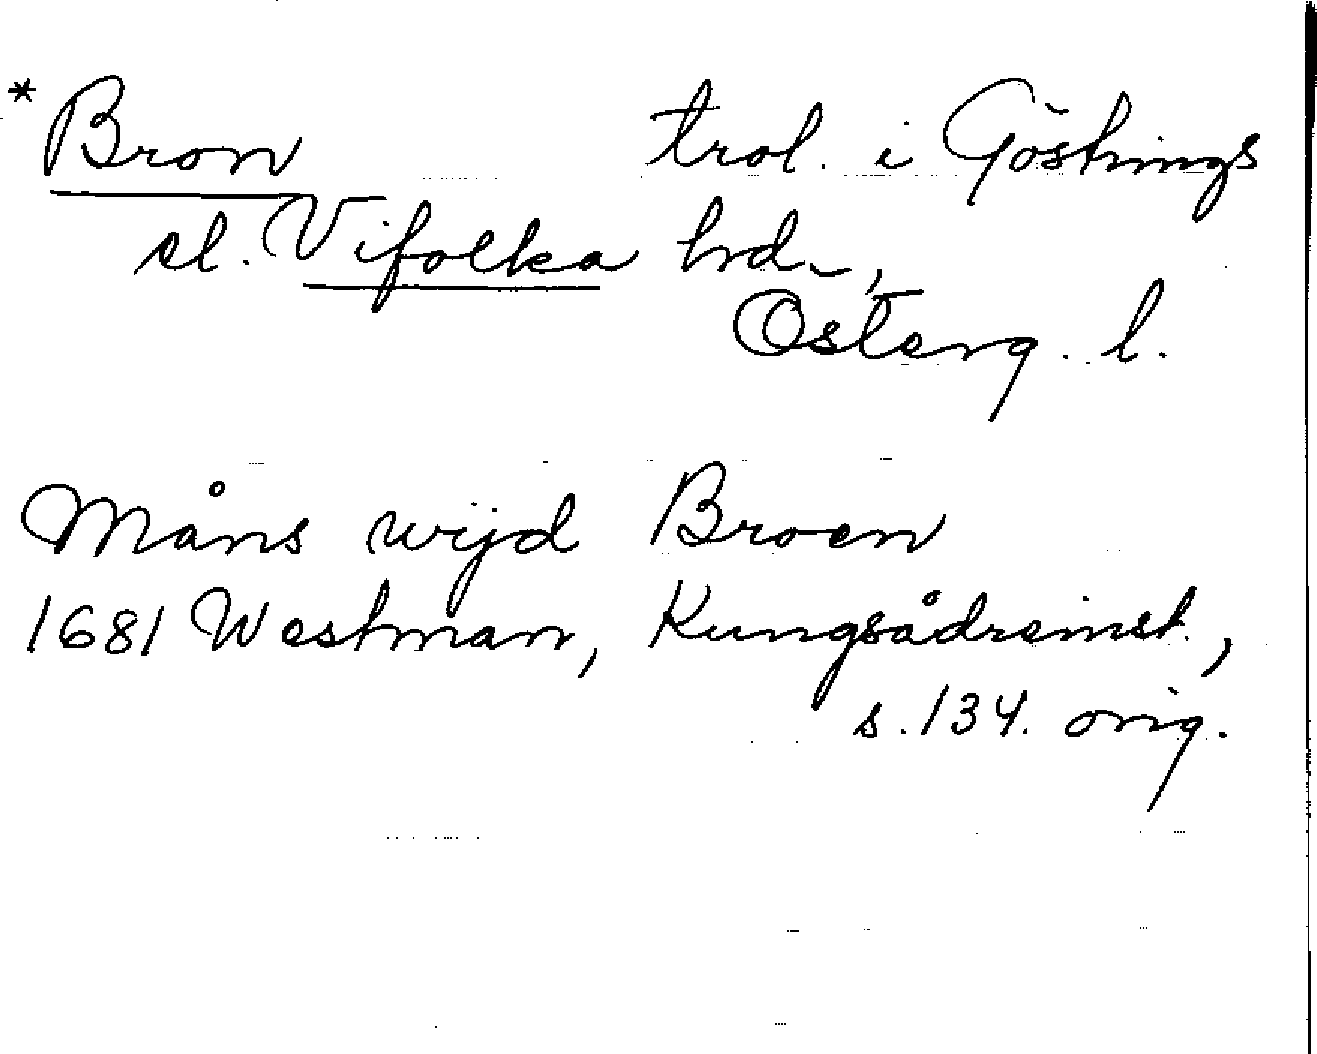 *Bron trol. i Göstrings
el. Vifolka hrd.,
Österg. l.
Måns wijd Broen
1681 Westman, Kungsådreinst.,
s. 134. orig.